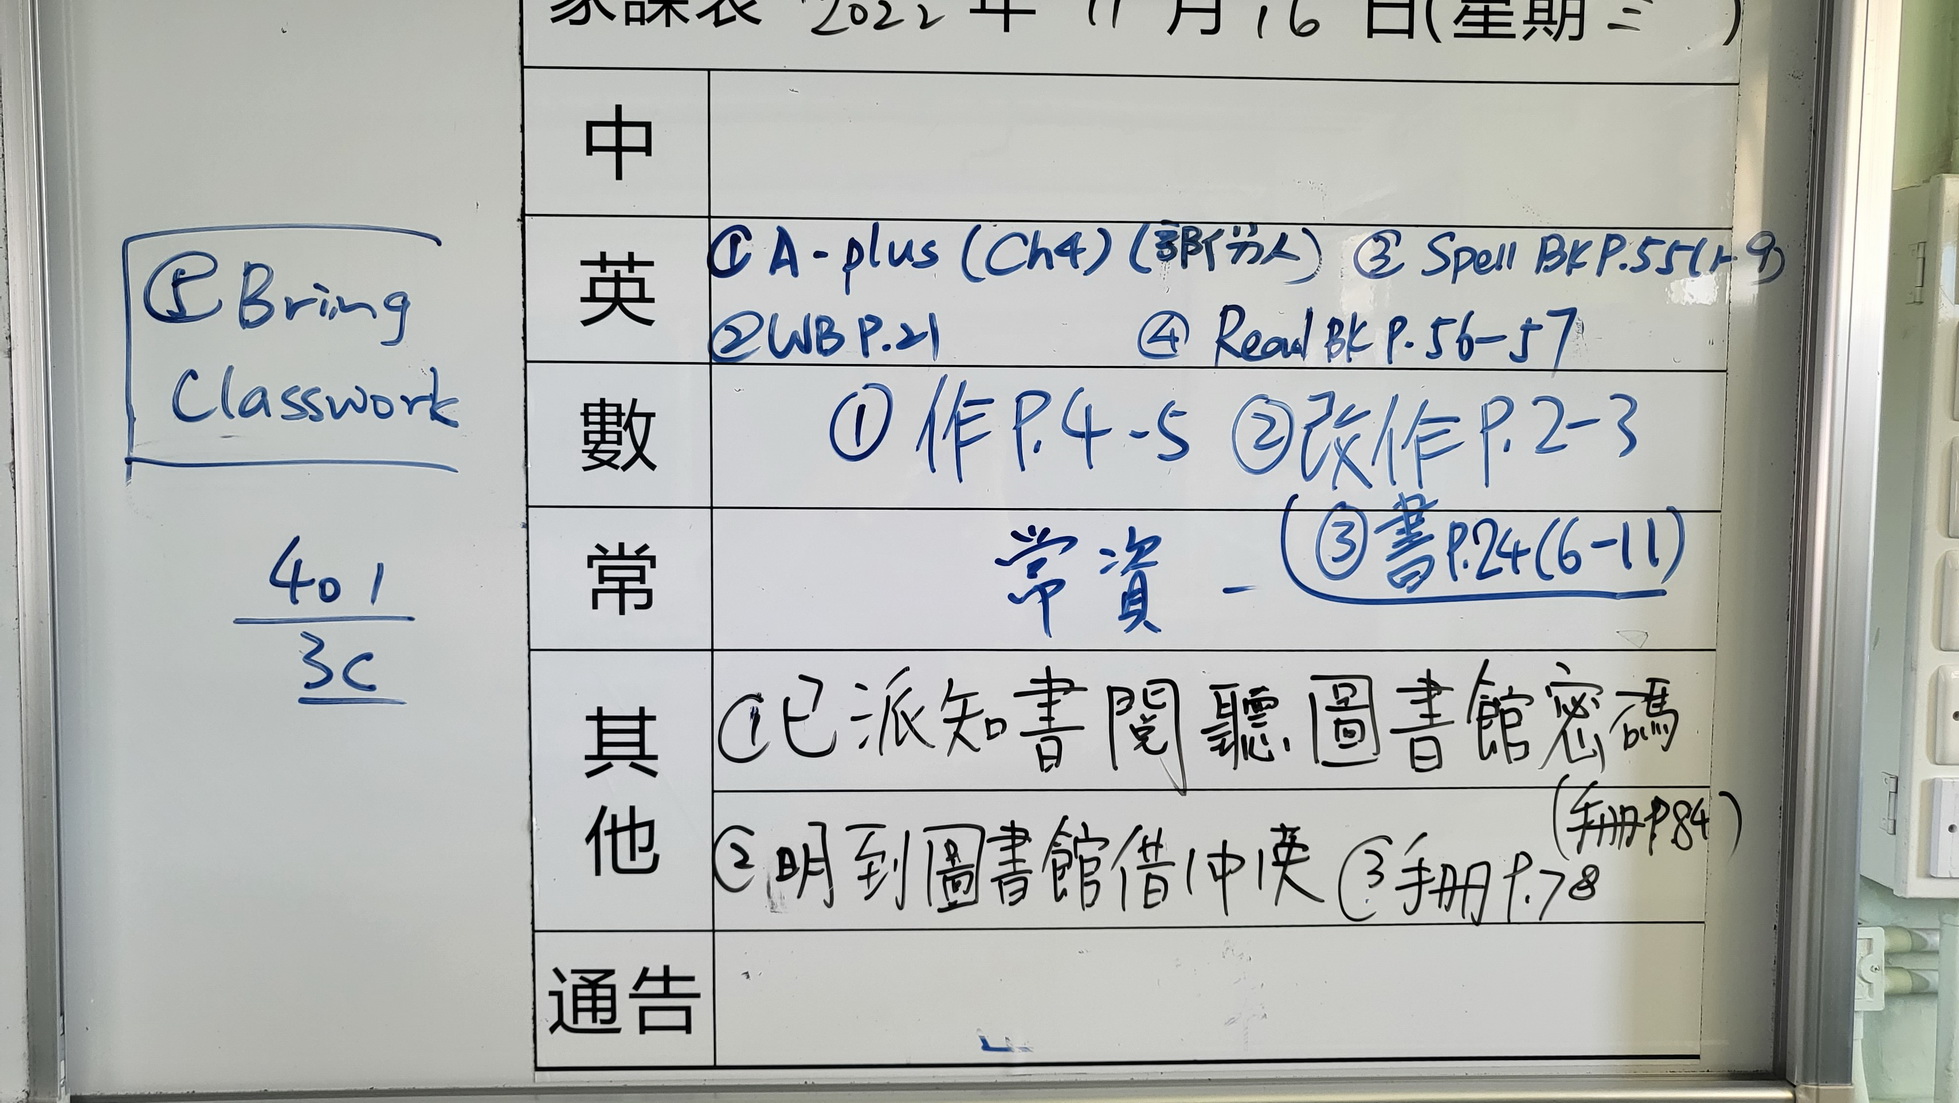 家課表 2022 年 11 月 16 日(星期三)
中
英
① A-plus (Ch4) (部份人) ③ Spell BK P.55(1-9)
② WB P.21 ④ Read BK P.56-57
⑤ Bring
Classwork
數
① 作P.4-5 ②改作P.2-3
③書P.24(6-11)
常
常資一
401
3C
其他
①已派知書閱聽圖書館密碼
(手冊P.84)
②明到圖書館借中英 ③手冊P.78
通告